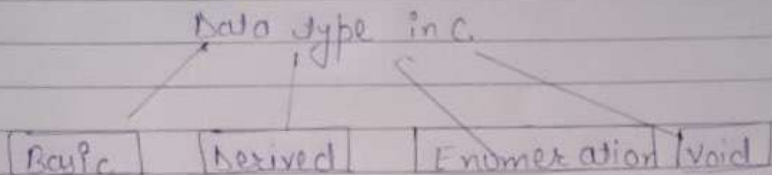 Data type in C.
Basic Derived Enumeration Void